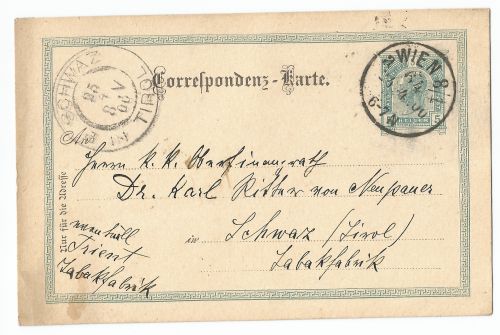 SCHWAZ IN TIROL
25 7 00
WIEN 8/1
Correspondenz-Karte.
An
Herrn k. k. Oberfinanzrath
Dr. Karl Ritter von Neupauer
in Schwaz (Tirol)
Tabakfabrik
eventuell
Trient
Tabakfabrik
Nur für die Adresse